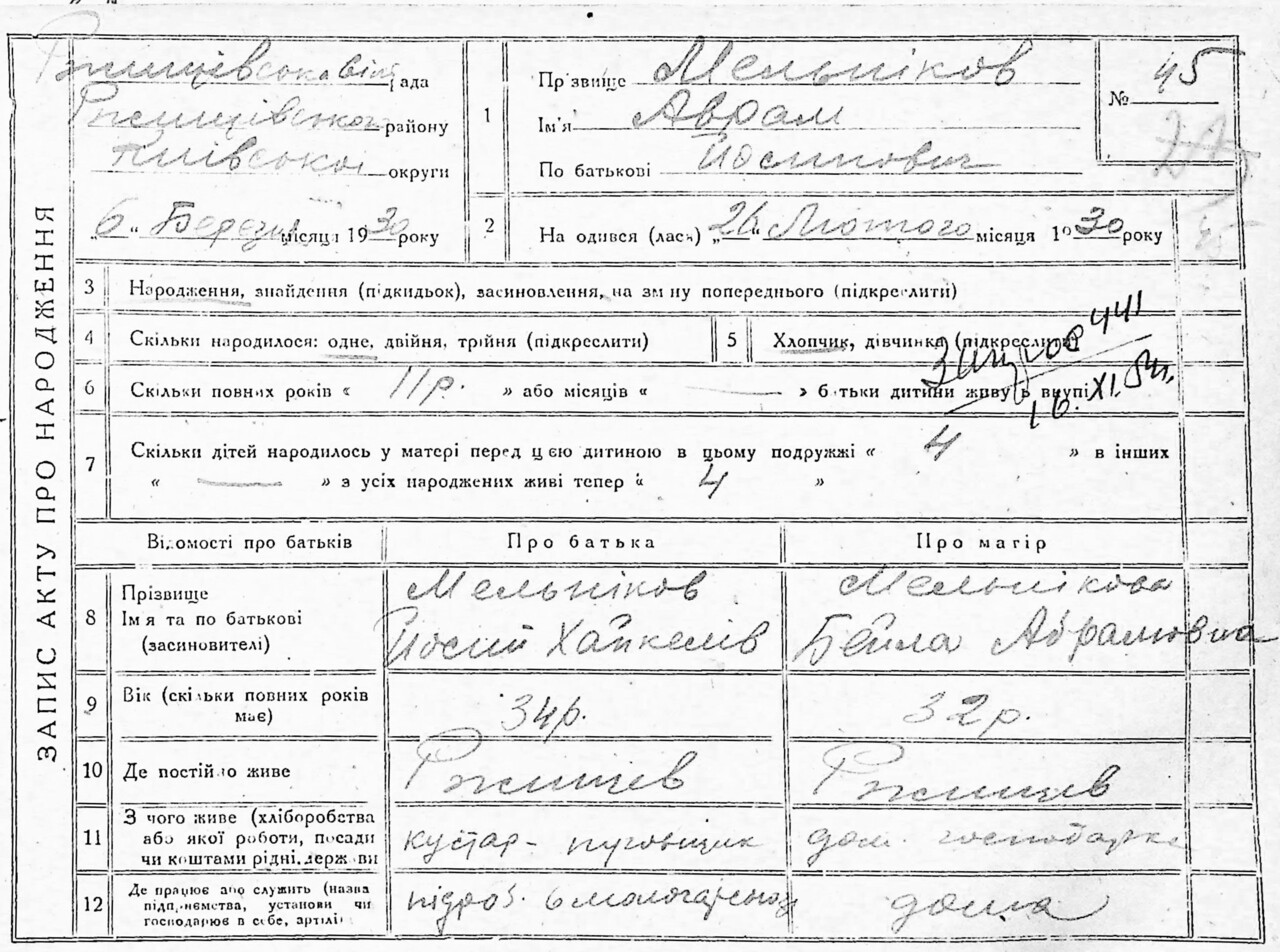 ЗАПИС АКТУ ПРО НАРОДЖЕННЯ
Ржищівська рада
Ржищівського району
Київської округи
„6“ Березня місяця 1930 року
1
Прізвище Мельніков
Ім'я Аврам
По батькові Йосипович
№ 45
2
Народився (лась) „26“ Лютого місяця 1930 року
3 Народження, знайдення (підкидьок), засиновлення, на зміну попереднього (підкреслити)
4 Скільки народилося: одне, двійня, трійня (підкреслити)
5 Хлопчик, дівчинка (підкреслити)
441
16.XI.
6 Скільки повних років « 11 р. » або місяців « — » батьки дитини живуть вкупі
7 Скільки дітей народилось у матері перед цією дитиною в цьому подружжі « 4 » в інших
« — » з усіх народжених живі тепер « 4 »
Відомості про батьків Про батька Про матір
8 Прізвище
Ім я та по батькові
(засиновителі)
Мельніков
Йосип Хайкелів
Мельнікова
Бейла Абрамовна
9 Вік (скільки повних років
має)
34р.
32 р.
10 Де постійно живе Ржищев Ржищев
11 З чого живе (хліборобства
або якої роботи, посади
чи коштами рідні, держави
кустар - пуговщик
дом. господарка
12 Де працює або служить (назва
підприємства, установи чи
господарює в себе, артілі
дома